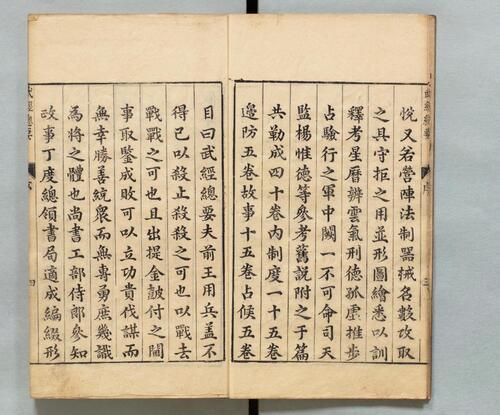 悅又若營陣法制器械名數攻取
之具守拒之用並形圖繪悉以訓
釋考星曆辨雲氣刑德孤虛推步
占驗行之軍中闕一不可命司天
監楊惟德等參考舊說附之于篇
共勒成四十卷內制度一十五卷
邊防五卷故事十五卷占候五卷
目曰武經總要夫前王用兵蓋不
得已以殺止殺殺之可也以戰去
戰戰之可也且出提金鼓付之閫
事取鑒成敗可以立功貴伐謀而
無幸勝善統衆而無專勇庶幾識
為將之體也尚書工部侍郎參知
政事丁度總領書局適成編綴形
武經總要
序
四